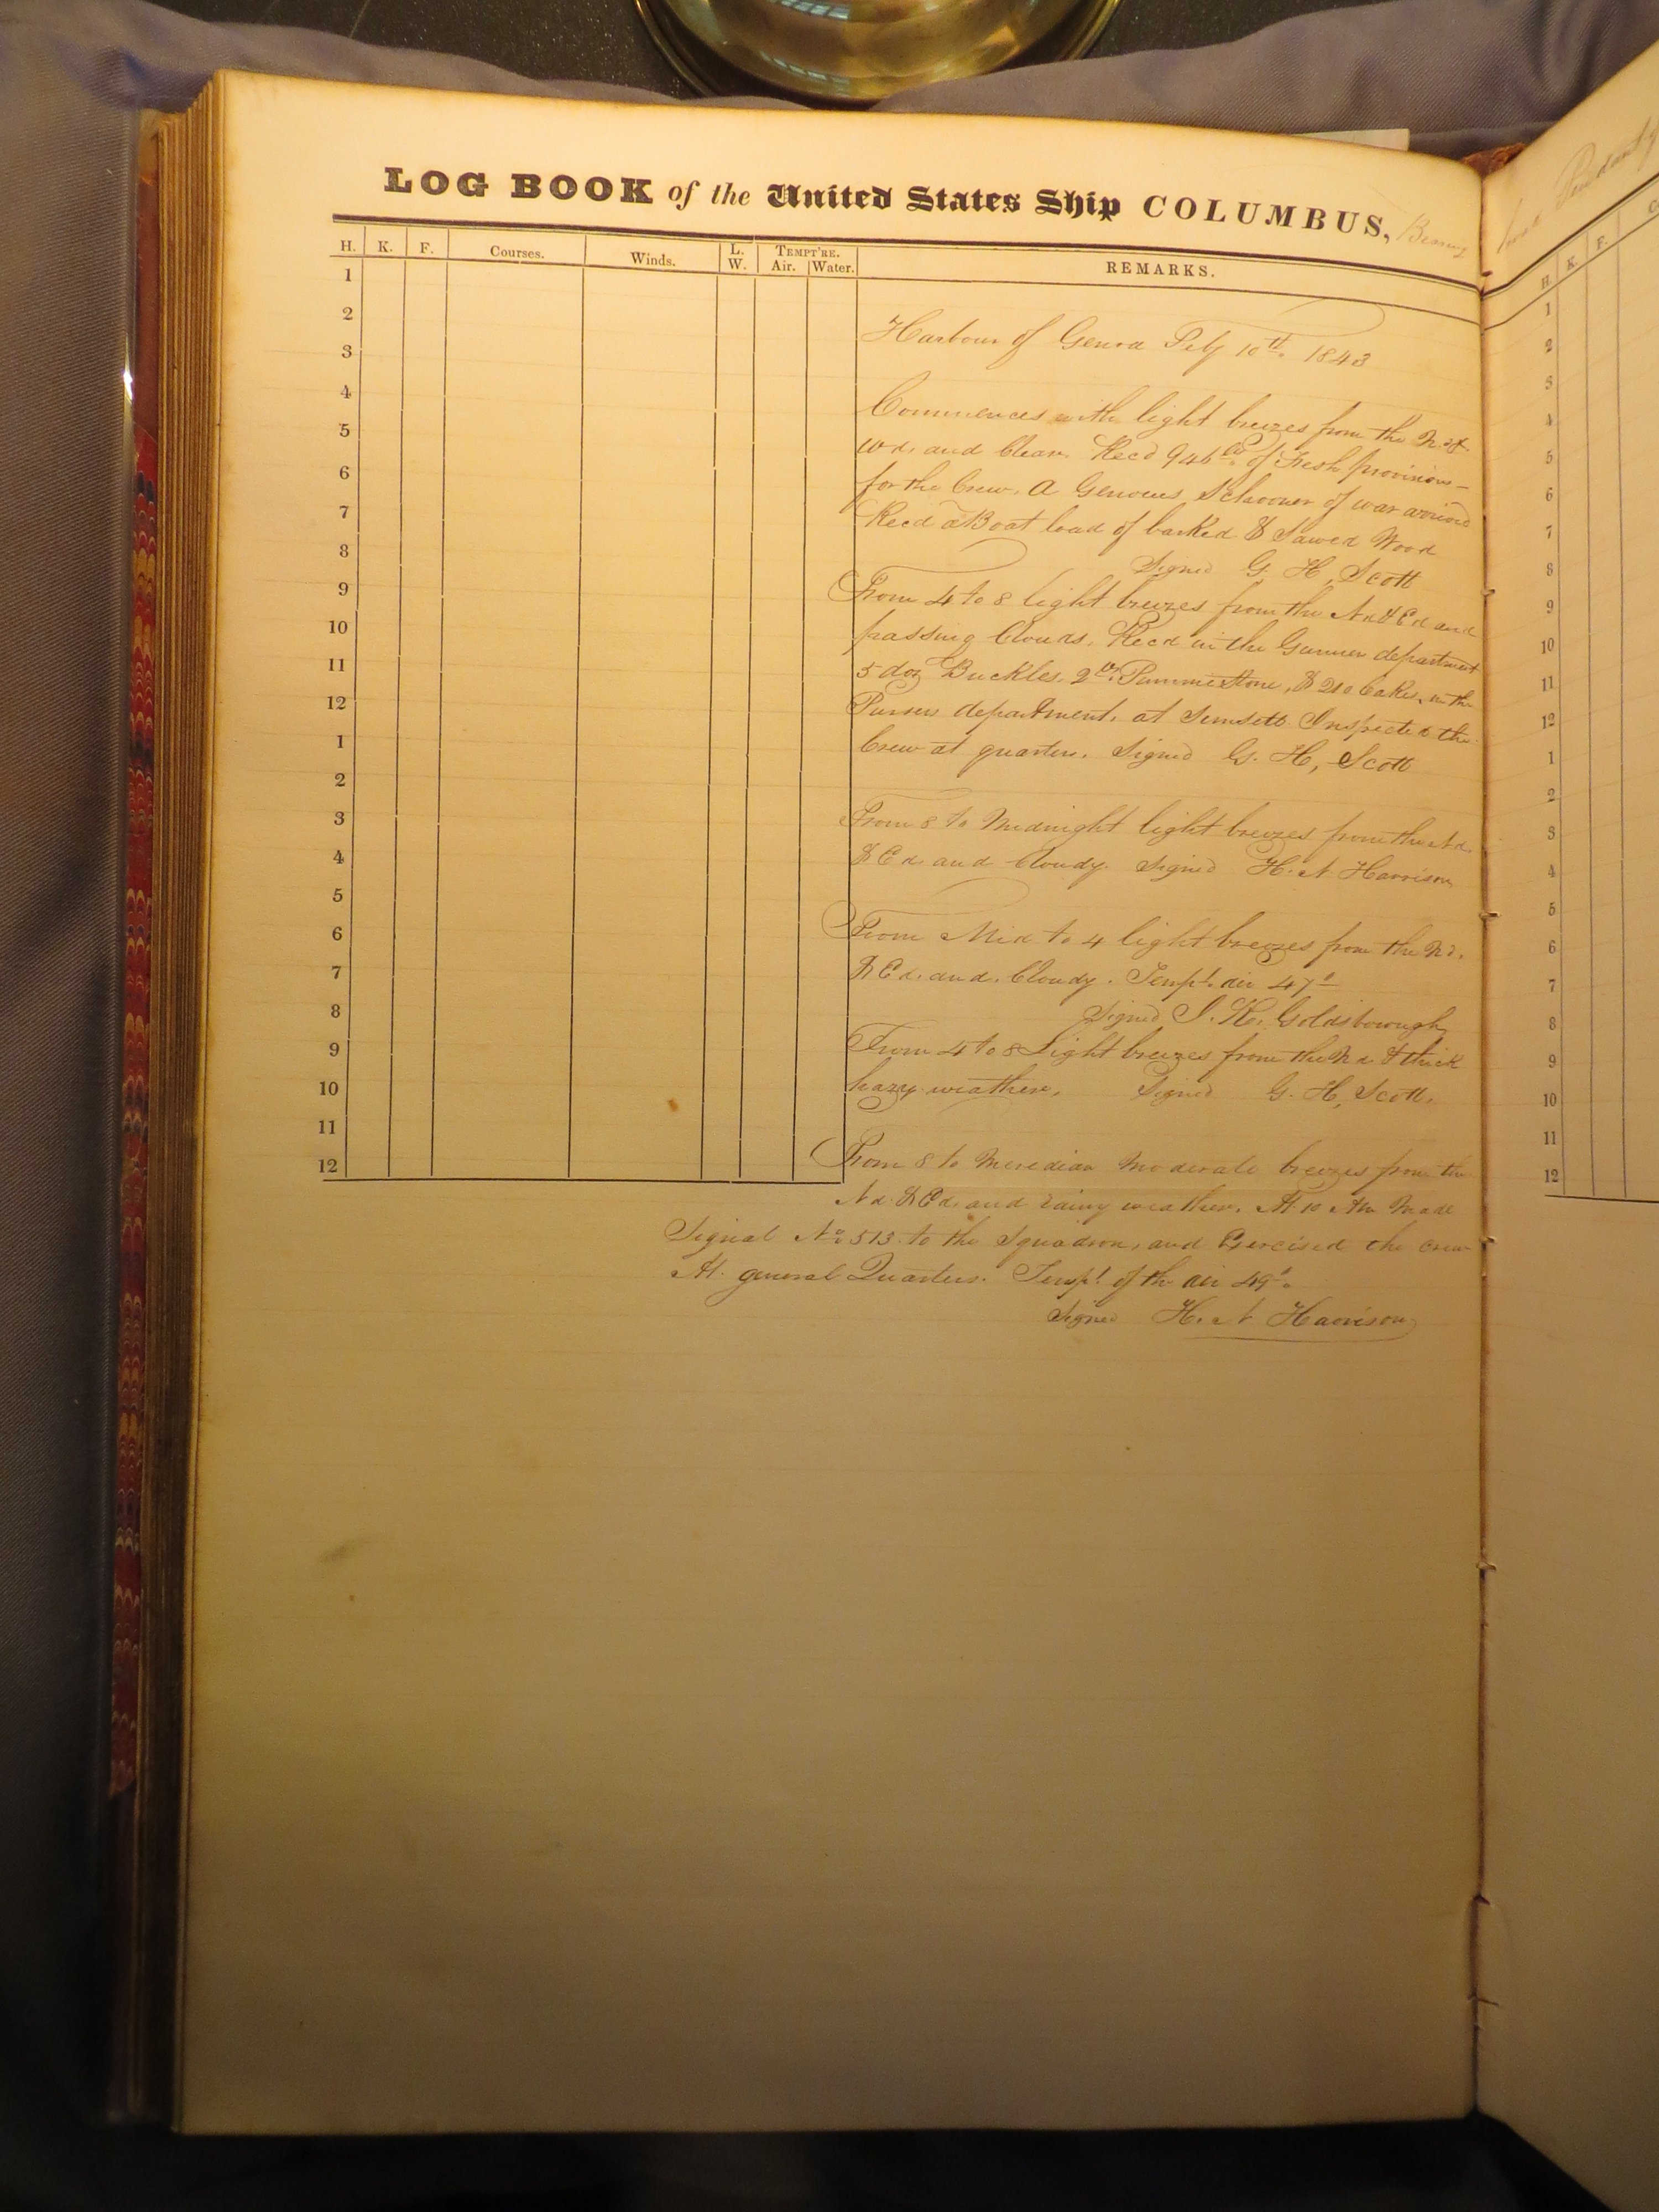 LOG BOOK of the United States Ship COLUMBUS, Bearing
H. K. F. Courses. Winds. L. W. TEMPT'RE. Air. Water. REMARKS.
1
2
3
4
5
6
7
8
9
10
11
12
1
2
3
4
5
6
7
8
9
10
11
12
Harbour of Genoa Feby 10th. 1843
Commences with light breezes from the N. &
Wd. and Clear. Recd 946 lbs of Fresh provisions
for the Crew. A Genoues Schooner of war arrived
Recd a Boat load of barked & Sawed Wood
Signed G. H, Scott
From 4 to 8 light breezes from the Nd & Ed and
passing Clouds. Recd in the Gunner department
5 doz Buckles, 2 lb. Pummestone, & 210 Cakes, in the
Pursers department. at Sunsett Inspected the
Crew at quarters. Signed G. H, Scott
From 8 to Midnight light breezes from the Nd.
& Ed. and Cloudy. Signed H. N. Harrison
From Mid to 4 light breezes from the Nd.
& Ed. and. Cloudy. Tempt. air 47°
Signed J. R. Goldsborough
From 4 to 8 Light breezes from the Nd. & thick
hazy weather, Signed G. H, Scott.
From 8 to Meredian moderate breezes from the
Nd. & Ed. and rainy weather. At 10 Am Made
Signal No 513. to the Squadron, and Exercised the crew
At. general Quarters. Tempt. of the air 49°.
Signed H. N Harrison
Pendant of
H. K. F.
1
2
3
4
5
6
7
8
9
10
11
12
1
2
3
4
5
6
7
8
9
10
11
12